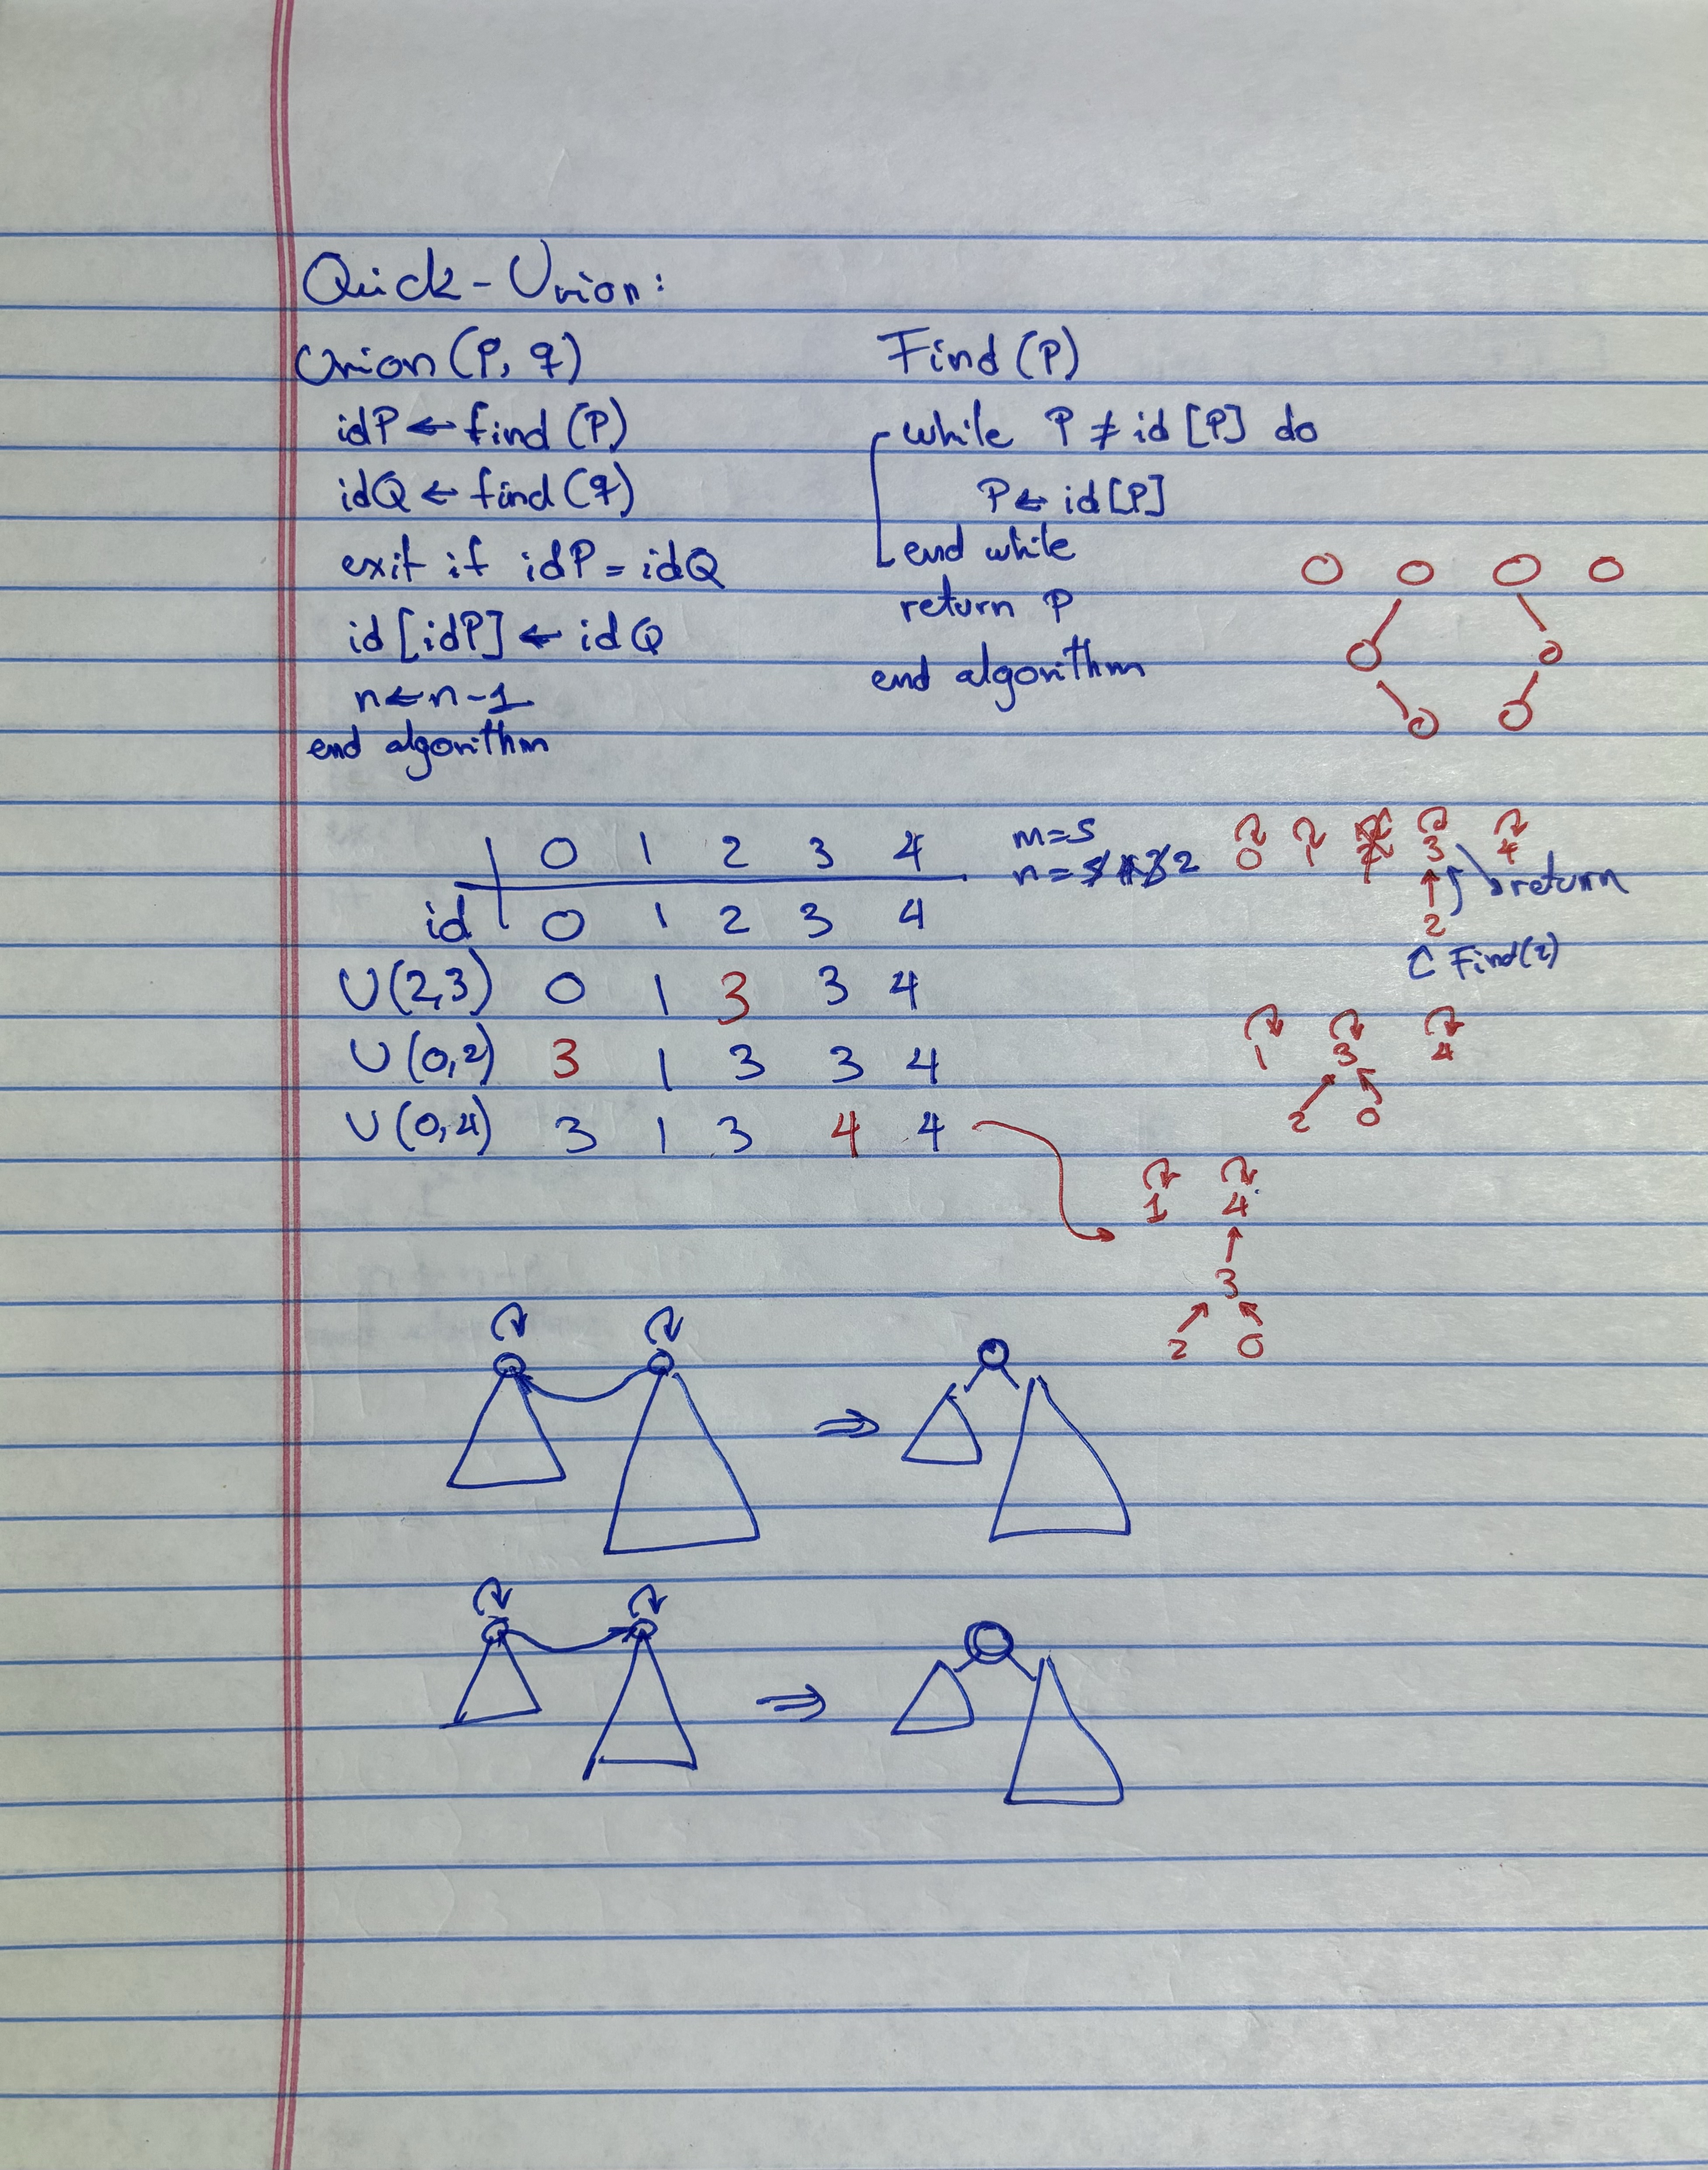 Quick-Union:
Union (P, q)
idP ← find (P)
idQ ← find (q)
exit if idP = idQ
id [idP] ← idQ
n ← n-1
end algorithm
Find (P)
while P ≠ id [P] do
P ← id [P]
end while
return P
end algorithm
0 1 2 3 4
id 0 1 2 3 4
U(2,3) 0 1 3 3 4
U(0,2) 3 1 3 3 4
U(0,4) 3 1 3 4 4
m=5
n = 5 4 3 2
0 1 2 3 4
return
2
Find(2)
1 3 4
2 0
1 4
3
2 0